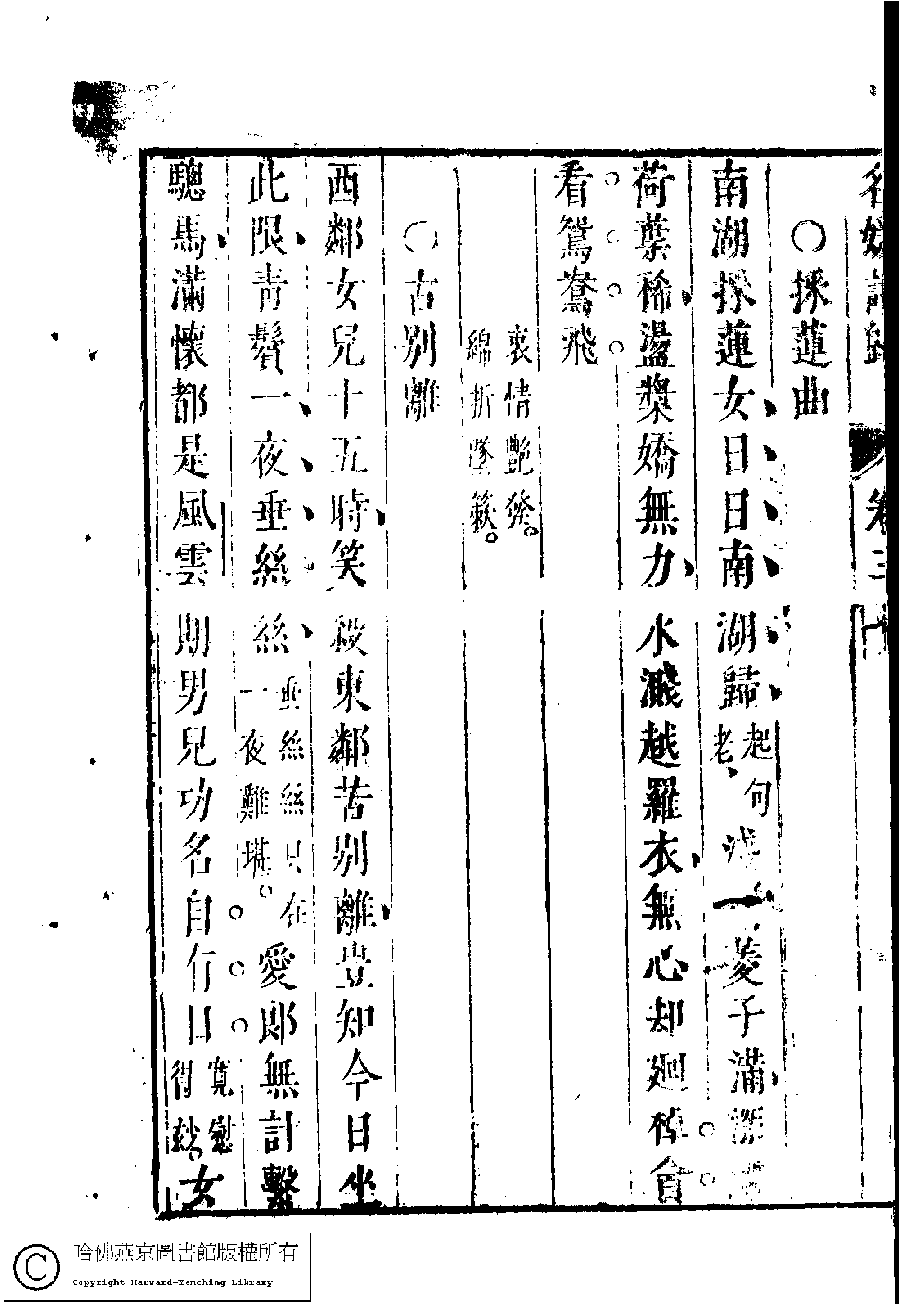 名媛詩歸 卷三
○採蓮曲
南湖採蓮女日日南湖歸起句老淺菱子滿深
荷葉稀盪槳嬌無力水濺越羅衣無心却迴棹貪
看鴛鴦飛
衷情艷發。
綿折墜簌。
○古別離
西鄰女兒十五時笑殺東鄰苦別離豈知今日坐
此限青鬢一夜垂絲絲垂絲絲只在一夜難堪。愛郎無計繫
驄馬滿懷都是風雲期男兒功名自有日寬慰得妙。女
哈佛燕京圖書館版權所有
Copyright Harvard-Yenching Library